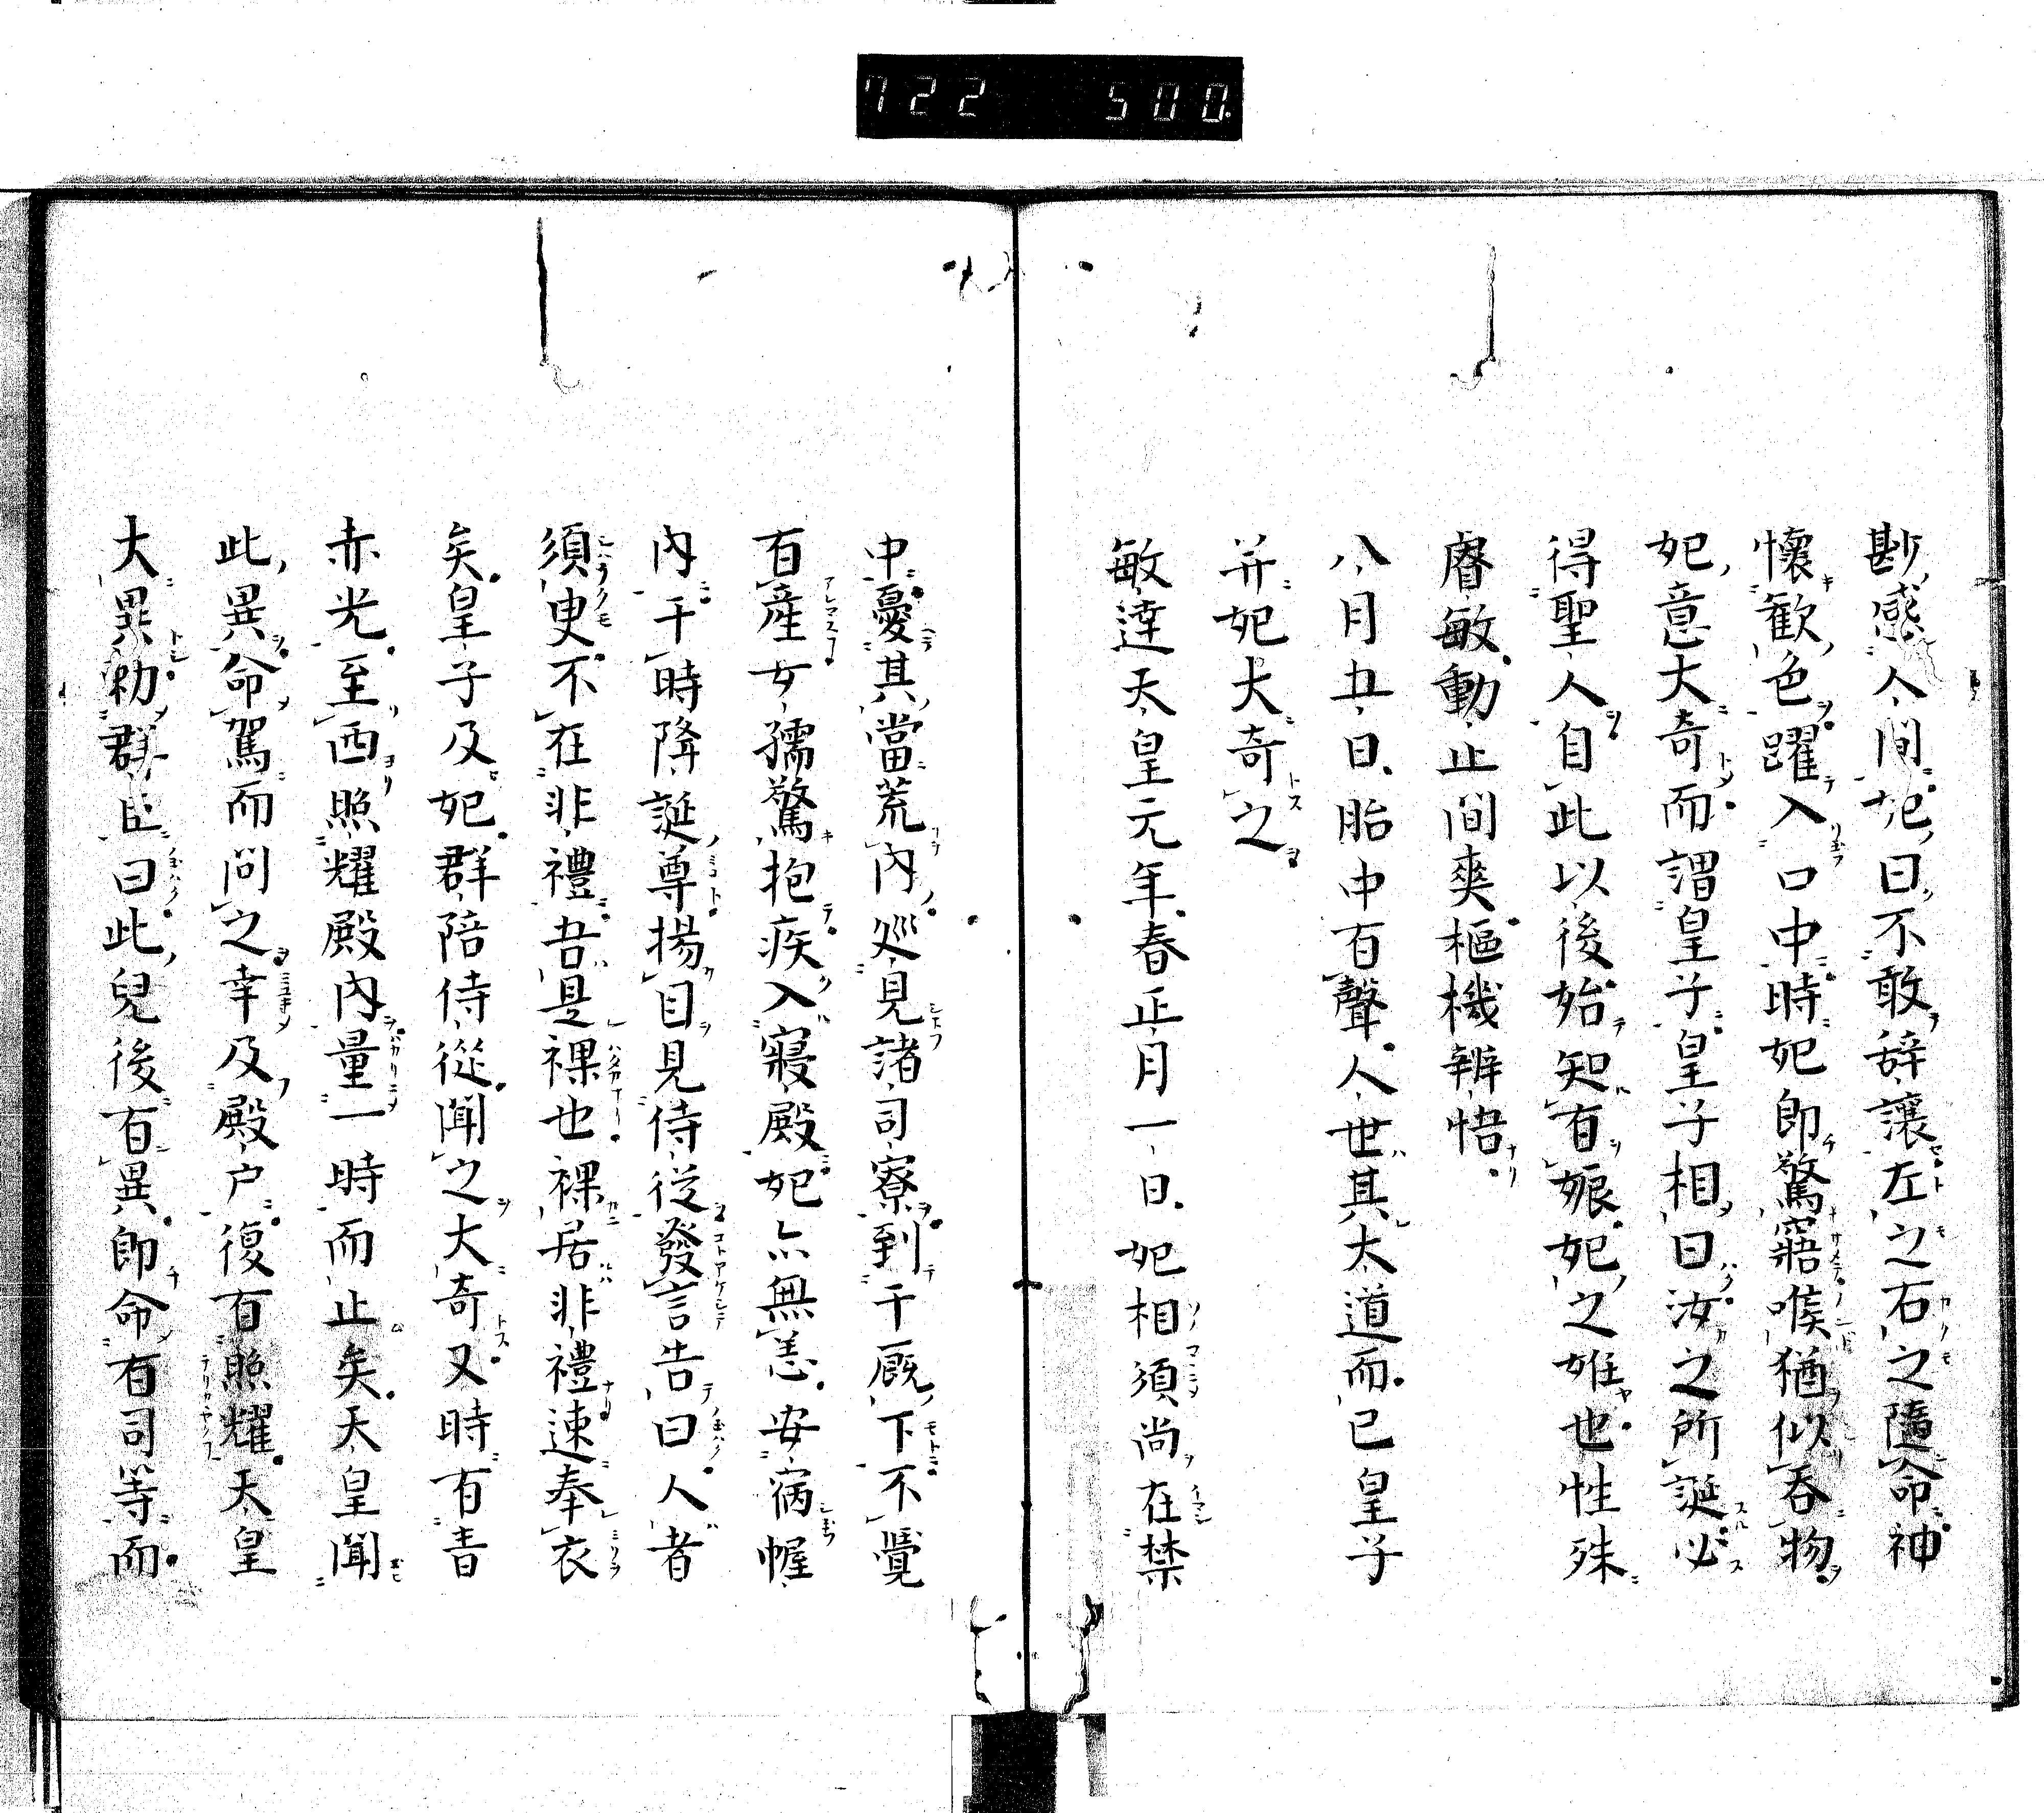 722 500.
尠感人間妃曰不敢辞讓左之右之隨命神
懷歡色躍入口中時妃即驚寤喉猶似吞物
妃意大奇而謂皇子皇子相曰汝之所誕必
得聖人自此以後始知有娠妃之姙也性殊
睿敏動止間爽樞機辨悟
八月五日胎中有聲人世其太道而已皇子
并妃大奇之
敏達天皇元年春正月一日妃相須尚在禁
中憂其當荒内巡見諸司寮到于厩下不覺
有産女孺驚抱疾入寢殿妃亦無恙安病幄
内于時降誕尊揚目見侍從發言告曰人者
須臾不在非禮吾是裸也裸居非禮速奉衣
矣皇子及妃群陪侍從聞之大奇又時有青
赤光至西照耀殿内量一時而止矣天皇聞
此異命駕而問之幸及殿户復有照耀天皇
大異勑群臣曰此兒後有異即命有司等而